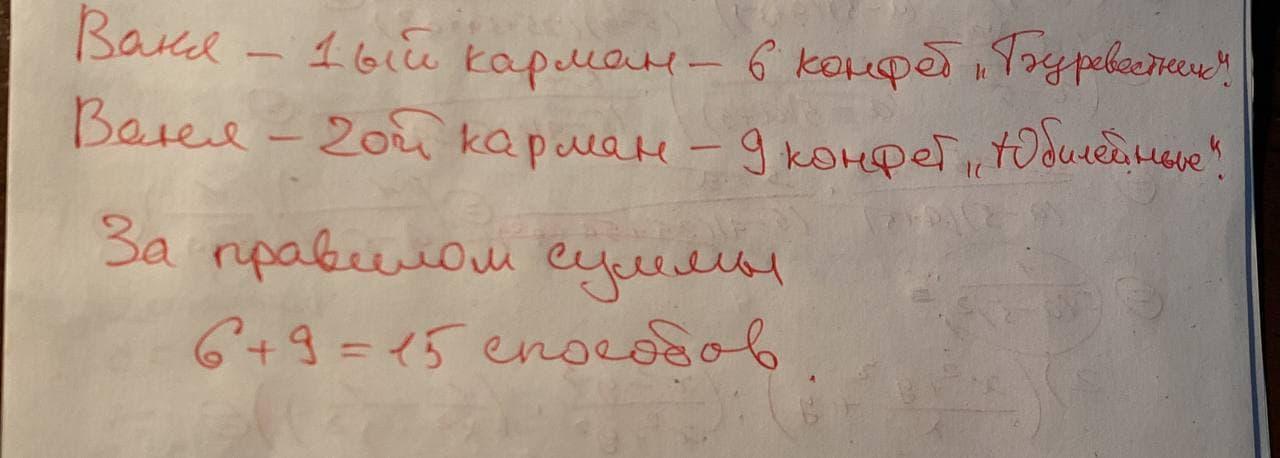 Ваня – 1ый карман – 6 конфет „Буревестник“.
Ваня – 2ой карман – 9 конфет „Юбилейные“.
За правилом суммы
6 + 9 = 15 способов.